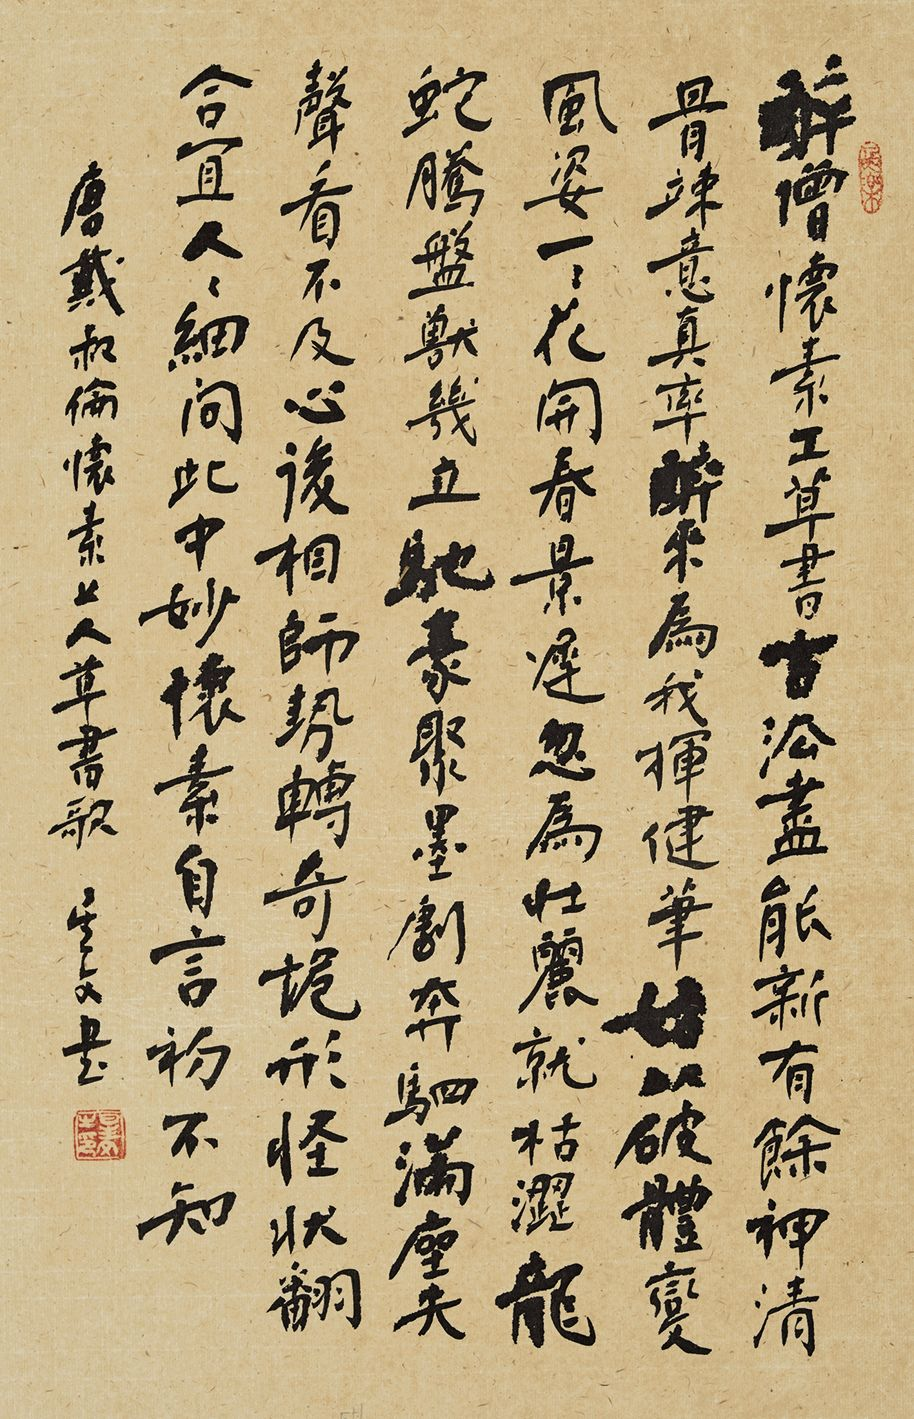 醉僧懷素工草書古法盡能新有餘神清
骨竦意真率醉來為我揮健筆廿以破體變
風姿一〻花開春景遲忽為壯麗就枯澀龍
蛇騰盤獸幾立馳豪聚墨劇奔駟滿座失
聲看不及心後相師勢轉奇詭形怪狀翻
合宜人〻細問此中妙懷素自言初不知
唐戴叔倫懷素上人草書歌 書